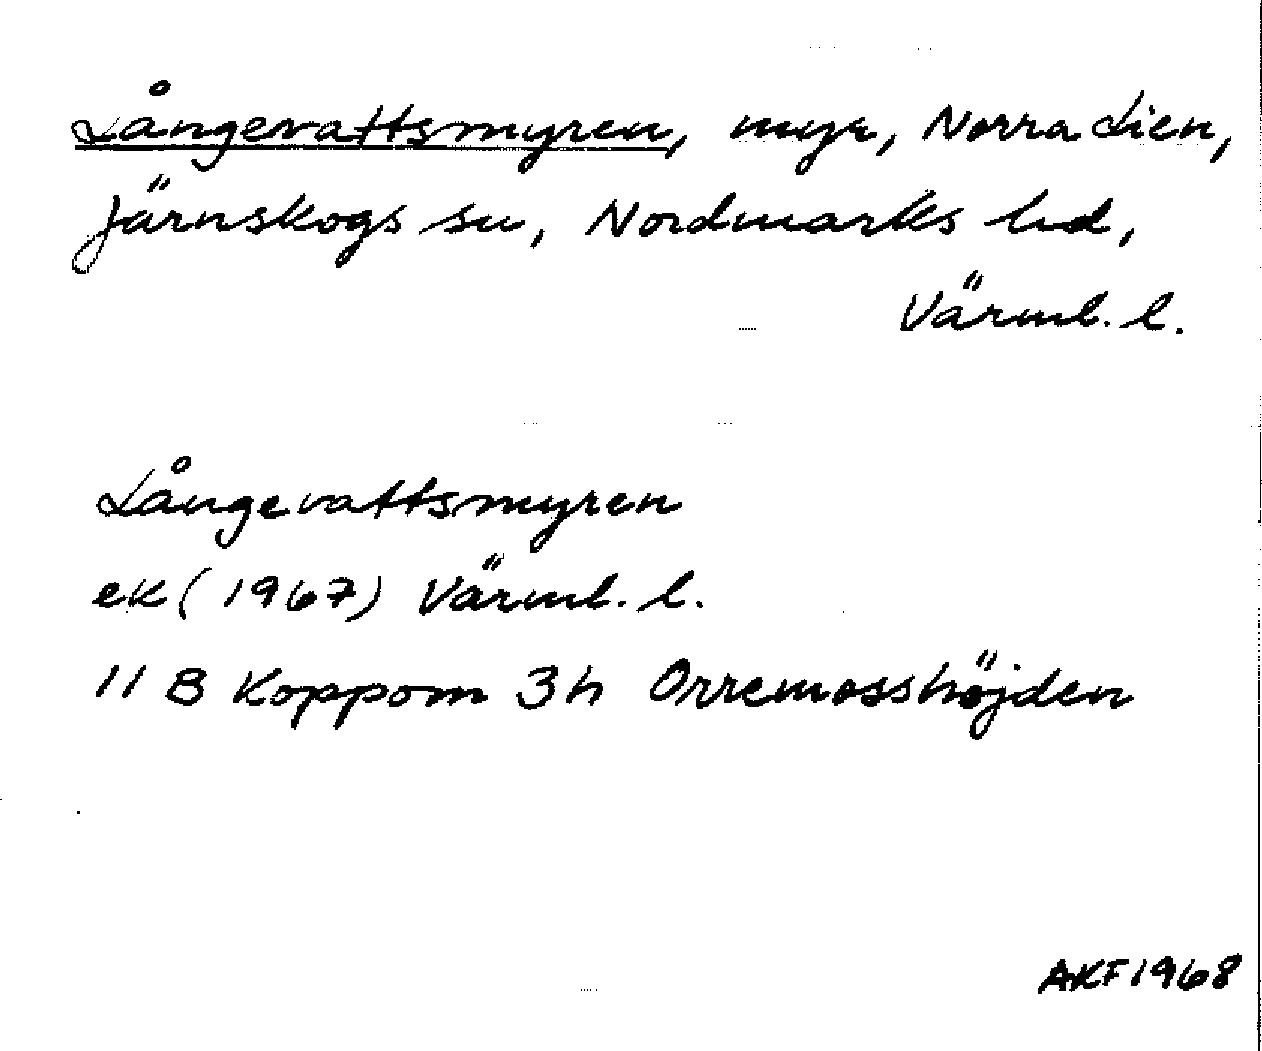 Långevattsmyren, myr, Norra Lien,
Järnskogs sn, Nordmarks hd,
Värml. l.
Långevattsmyren
ek (1967) Värml. l.
11 B Koppom 3h Orremosshöjden
AKF 1968